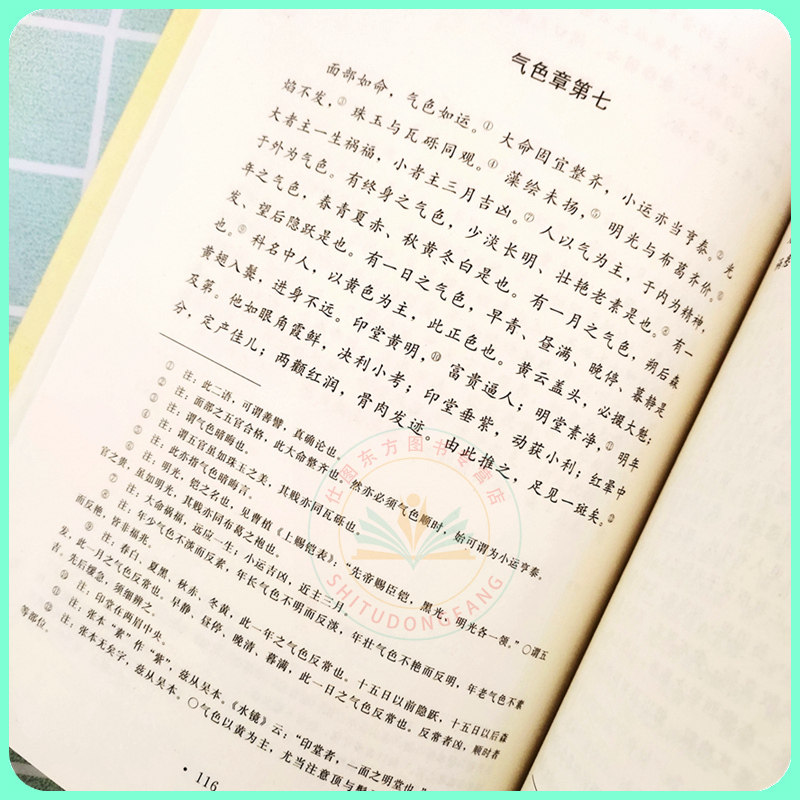 气色章第七
面部如命，气色如运。① 大命固宜整齐，小运亦当亨泰。② 光
焰不发，③ 珠玉与瓦砾同观。④ 藻绘未扬，⑤ 明光与布葛齐价。⑥
大者主一生祸福，小者主三月吉凶。⑦ 人以气为主，于内为精神，
于外为气色。有终身之气色，少淡长明、壮艳老素是也。⑧ 有一
年之气色，春青夏赤、秋黄冬白是也。有一月之气色，朔后森
发、望后隐跃是也。有一日之气色，早青、昼满、晚停、暮静是
也。⑨ 科名中人，以黄色为主，此正色也。黄云盖头，必掇大魁；
黄翅入鬓，进身不远。印堂黄明，⑩ 富贵逼人；明堂素净，⑪ 明年
及第。他如眼角霞鲜，决利小考；印堂垂紫，动获小利；红晕中
分，定产佳儿；两颧红润，骨肉发迹。由此推之，足见一斑矣。⑫
① 注：此二语，可谓善譬，真确论也。
② 注：面部之五官合格，此大命整齐也。然亦必须气色顺时，始可谓为小运亨泰。
③ 注：谓气色暗晦也。
④ 注：谓五官虽如珠玉之美，其贱亦同瓦砾也。
⑤ 注：此亦指气色暗晦言。
⑥ 注：明光，铠之名也，见曹植《上赐铠表》：“先帝赐臣铠，黑光、明光各一领。”○谓五
官之贵，虽如明光，其贱亦同布葛之袍也。
⑦ 注：大命祸福，远应一生；小运吉凶，近主三月。
⑧ 注：年少气色不淡而反素，年长气色不明而反淡，年壮气色不艳而反明，年老气色不素
而反艳，皆非福兆。
⑨ 注：春白、夏黑、秋赤、冬黄，此一年之气色反常也。十五日以前隐跃，十五日以后森
发，此一月之气色反常也。早静、昼停、晚清、暮满，此一日之气色反常也。反常者凶，顺时者
吉，先后缓急，须细辨之。
⑩ 注：印堂在两眉中央。
⑪ 注：张本“素”作“紫”，兹从吴本。《水镜》云：“印堂者，一面之明堂也。”
⑫ 注：张本无矣字，兹从吴本。○气色以黄为主，尤当注意顶与
等部位。
· 116
仕图东方图书专营店
SHITUDONGFANG